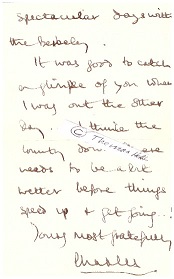 spectacular days with
the Berkeley.
It was good to catch
a glimpse of you when
I was out the other
day. I think the
country down
needs to be a bit
wetter before things
speed up & get going..!
Yours most gratefully
Charles